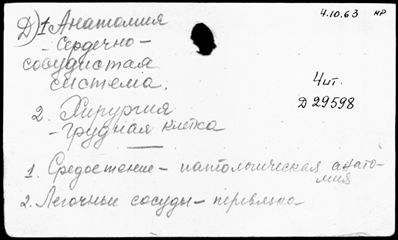 4.10.63 НР
Д) 1 Анатомия
- Сердечно-
сосудистая
система.
Чит.
Д 29598
2. Хирургия
- Грудная клетка
1. Средостение - патологическая анато-
мия
2. Легочные сосуды - перевязка